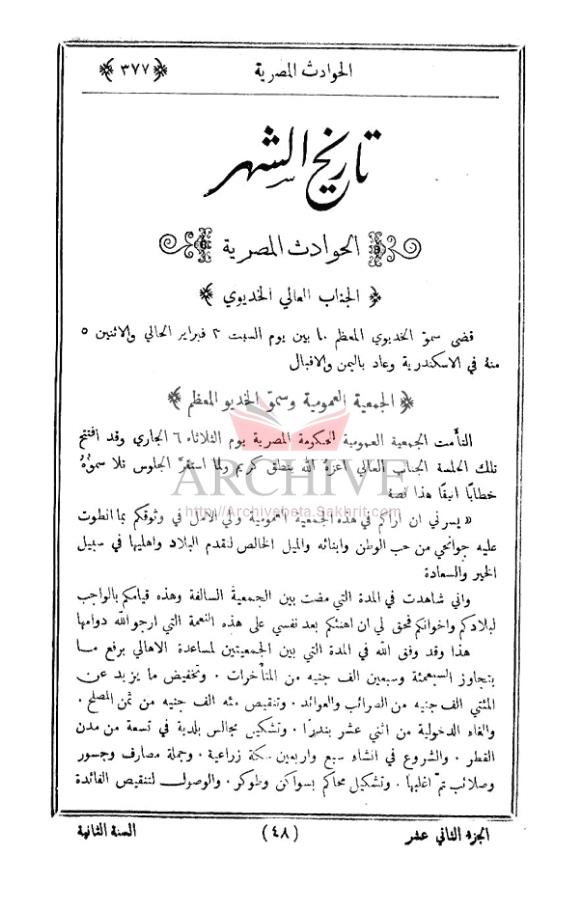 ﴿ ٣٧٧ ﴾ الحوادث المصرية
تاريخ الشهر
الحوادث المصرية
﴿ الجناب العالي الخديوي ﴾
قضى سموّ الخديوي المعظم ما بين يوم السبت ٢ فبراير الحالي والاثنين ٥
منهُ في الاسكندرية وعاد باليمن والاقبال
﴿ الجمعية العمومية وسموّ الخديو المعظم ﴾
التأمت الجمعية العمومية للحكومة المصرية يوم الثلاثاء ٦ الجاري وقد افتتح
تلك الجلسة الجناب العالي اعزهُ الله بنطق كريم ولما استقرّ الجلوس تلا سموّهُ
خطابًا انيقًا هذا نصهُ
« يسرني ان اراكم في هذه الجمعية العمومية ولي الامل في وثوقكم بما انطوت
عليه جوانحي من حب الوطن وابنائه والميل الخالص لتقدم البلاد واهليها في سبيل
الخير والسعادة
واني شاهدت في المدة التي مضت بين الجمعية السالفة وهذه قيامكم بالواجب
لبلادكم واخوانكم فحق لي ان اهنئكم بعد نفسي على هذه النعمة التي ارجو الله دوامها
هذا وقد وفق الله في المدة التي بين الجمعيتين لمساعدة الاهالي برفع مـا
يتجاوز السبعمئة وسبعين الف جنيه من المتأخرات ٠ وتخفيض ما يزيد عن
المئتي الف جنيه من الضرائب والعوائد ٠ وتنقيص مئه الف جنيه من ثمن الملح ٠
والغاء الدخولية من اثني عشر بندرًا ٠ وتشكيل مجالس بلدية في تسعة من مدن
القطر ٠ والشروع في انشاء سبع واربعين سكة زراعية ٠ وجملة مصارف وجسور
وصلائب تمّ اغلبها ٠ وتشكيل محاكم بسواكن وطوكر ٠ والوصول لتنقيص الفائدة
الجزء الثاني عشر (٤٨) السنة الثانية
ARCHIVE
http://Archivebeta.Sakhrit.com